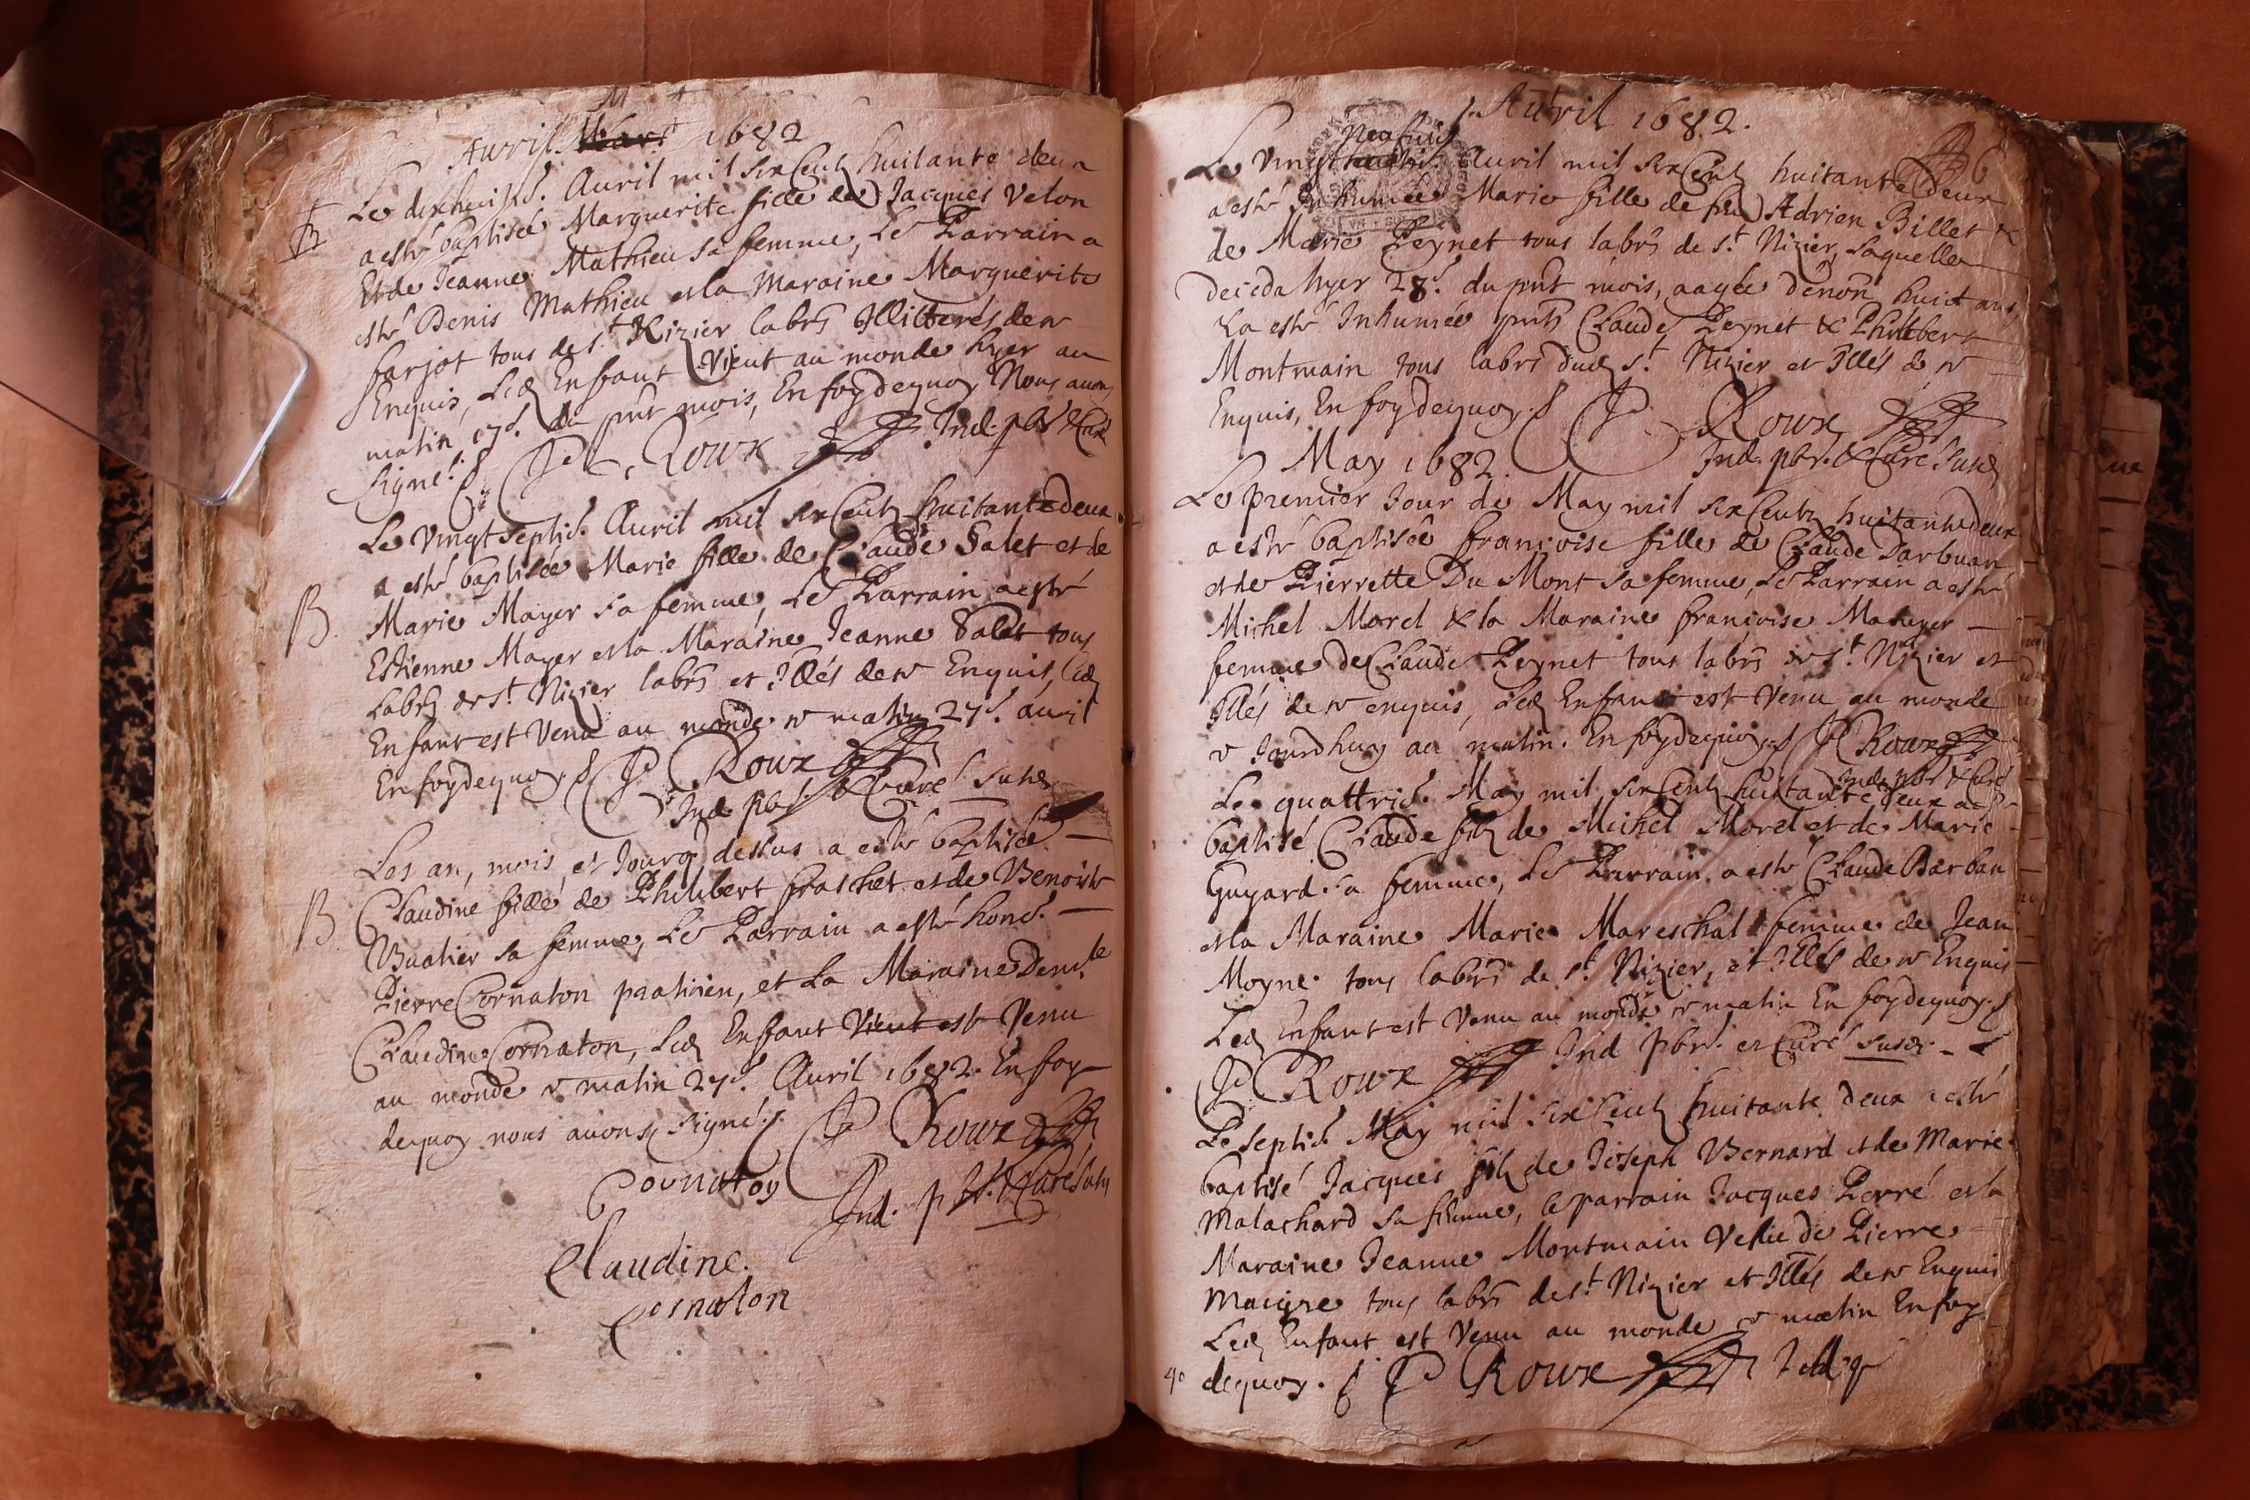 Avril Mars 1682
B
Le dixhuic.e Auril mil six Cents huitante deux
a esté baptisée Marguerite fille de Jacques Velon
Et de Jeanne Mathieu sa femme, Le Parrain a
esté Denis Mathieu et la Maraine Marguerite
farjot tous de s.t Nizier labrs Illitterés de ce
Enquis, Led Enfant Vient au monde hyer au
matin 17.e du pnt mois, En foy de quoy Nous auons
signé.
P Roux Ind. pbr & Curé
B.
Le Vingt septie. Auril mil six Cents huitante deux
a esté baptisée Marie fille de Claude Salet et de
Marie Mayer sa femme, Le Parrain a esté
Estienne Mayer et la Maraine Jeanne Salet tous
Labrs de s.t Nizier labrs et Illés de ce Enquis, Led
Enfant est Venu au monde ce matin 27.e auril
En foy de quoy P Roux
Ind. pbr & Curé susd
B.
Les an, mois, et Jour q dessus a esté baptisée
Claudine fille de Philibert fraschet et de Benoiste
Vuatier sa femme, Le Parrain a esté hon.e
Pierre Cornaton praticien, et La Maraine Dem.le
Claudine Cornaton, Led Enfant Vient est Venu
au monde ce matin 27.e Auril 1682. En foy
de quoy nous auons signé.
P Roux
Cornaton
Ind. pbr. & Curé susd
Claudine.
Cornaton
Auril 1682.
neufuie
Le Vingt Auril mil six Cents huitante deux
a esté Inhumée Marie fille de feu Adrien Billet &
de Marie Peynet tous labrs de s.t Nizier, laquelle
deceda hyer 28.e du pnt mois, aagée denon huict ans,
La esté Inhumée pnts Claude Peynet & Philibert
Montmain tous labrs dud s.t Nizier et Illés de ce
Enquis, En foy de quoy. P Roux
Ind. pbr. & Curé susd
May 1682.
Le premier Jour de May mil six Cents huitante deux
a esté baptisée françoise fille de Claude Darbuan
et de Pierrette Du Mont sa femme, Le Parrain a esté
Michel Morel & la Maraine françoise Mayer
femme de Claude Peynet tous labrs de s.t Nizier et
Illés de ce enquis, Led Enfant est Venu au monde
ce Jourdhuy au matin. En foy de quoy. P Roux
Ind. pbr & Curé
Le quattrie. May mil six Cents huitante deux a esté
baptisé Claude fils de Michel Morel et de Marie
Guyard sa femme, Le Parrain a esté Claude Barban
et la Maraine Marie Mareschal femme de Jean
Moyne tous labrs de s.t Nizier, et Illés de ce Enquis
Led Enfant est Venu au monde ce matin En foy de quoy.
P Roux Ind pbr. et Curé susd.
Le septie. May mil six Cents huitante deux a esté
baptisé Jacques fils de Joseph Bernard et de Marie
Malachard sa femme, le parrain Jacques Pierré et la
Maraine Jeanne Montmain Vefue de Pierre
Maigre tous labrs de s.t Nizier et Illés de ce Enquis
Led Enfant est Venu au monde ce matin En foy
de quoy. P Roux